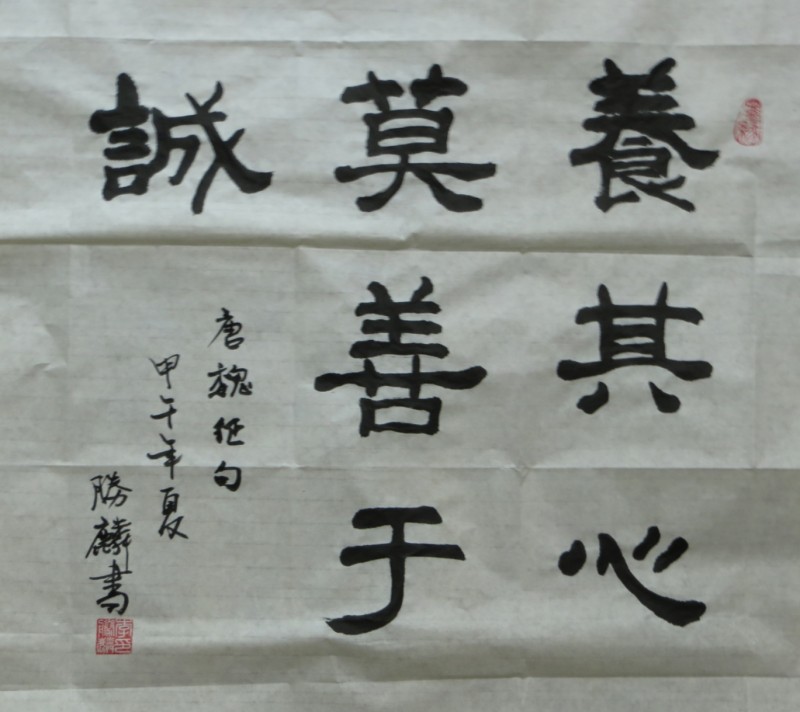 養其心
莫善于
誠
唐魏征句
甲午年夏
勝麟書